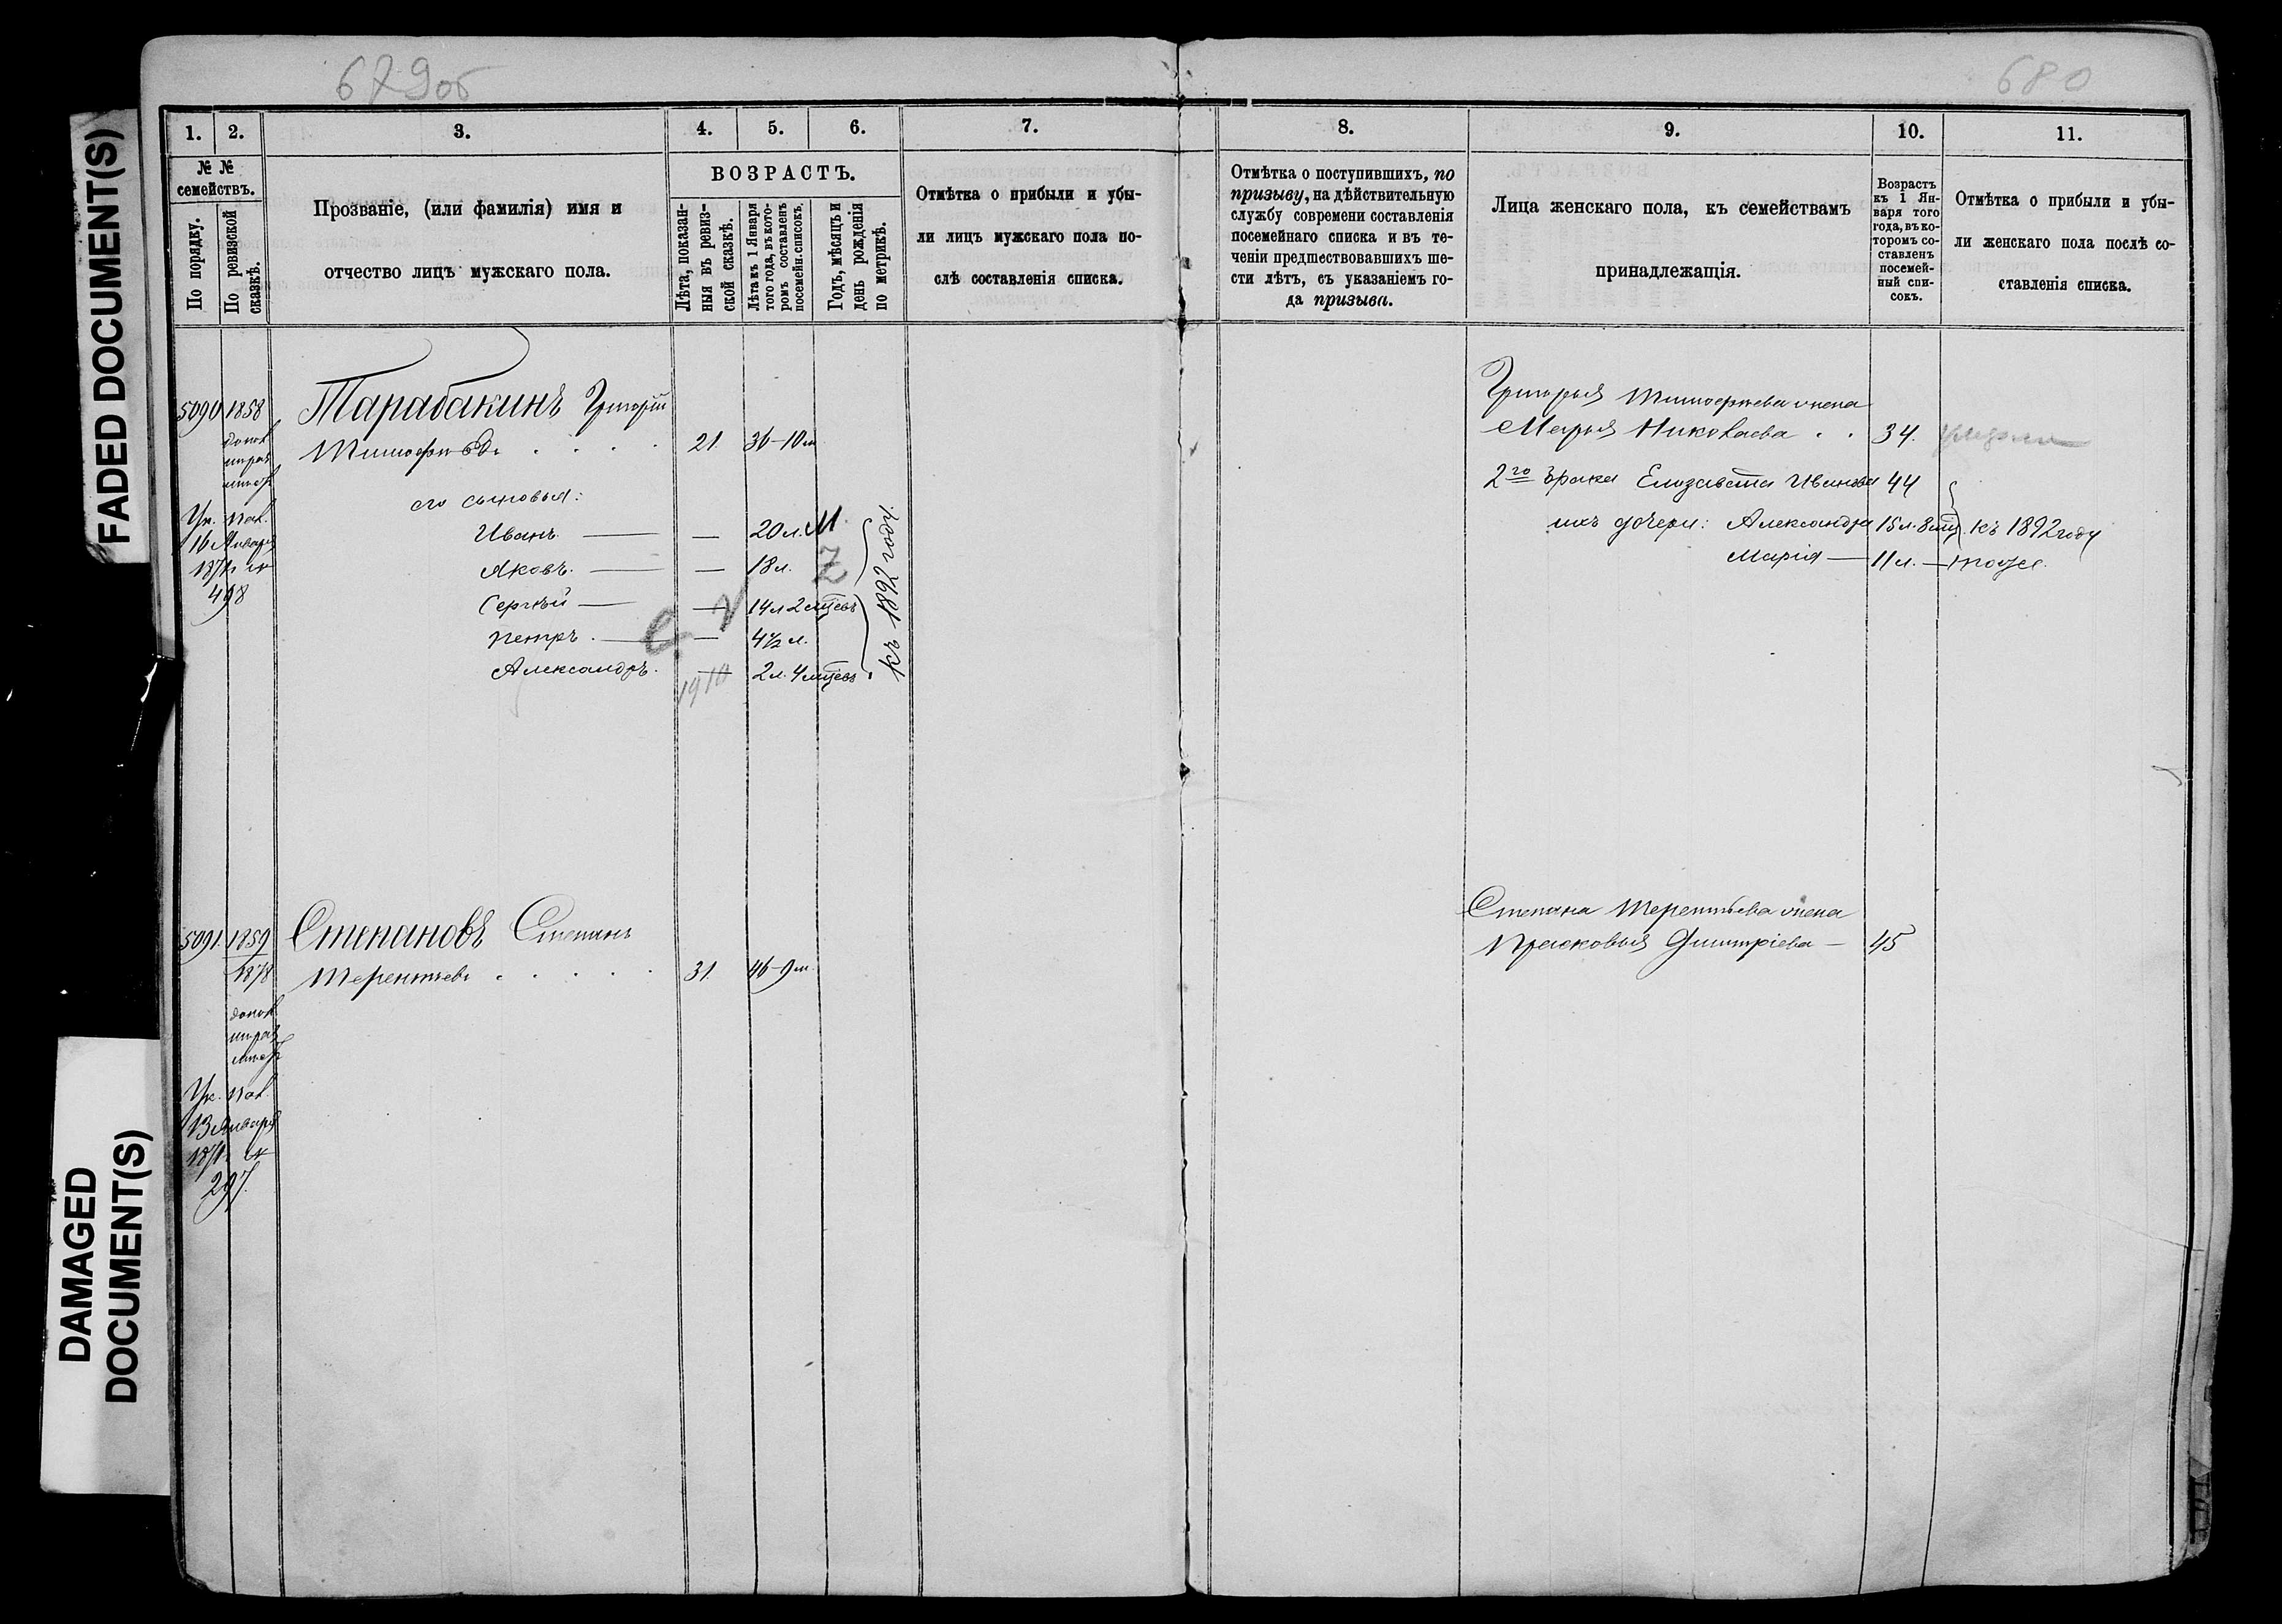 FADED DOCUMENT(S)
DAMAGED
DOCUMENT(S)
679об
680
1.
2.
3.
4.
5.
6.
7.
8.
9.
10.
11.
№ №
семействъ.
По порядку.
По ревизской
сказкѣ.
Прозваніе, (или фамилія) имя и
отчество лицъ мужскаго пола.
ВОЗРАСТЪ.
Лѣта, показан-
ныя въ ревиз-
ской сказкѣ.
Лѣта къ 1 Января
того года, въ кото-
ромъ составленъ
посемейн. списокъ.
Годъ, мѣсяцъ и
день рожденія
по метрикѣ.
Отмѣтка о прибыли и убы-
ли лицъ мужскаго пола по-
слѣ составленія списка.
Отмѣтка о поступившихъ, по
призыву, на дѣйствительную
службу современи составленія
посемейнаго списка и въ те-
ченіи предшествовавшихъ ше-
сти лѣтъ, съ указаніемъ го-
да призыва.
Лица женскаго пола, къ семействамъ
принадлежащія.
Возрастъ
къ 1 Ян-
варя того
года, въ ко-
торомъ со-
ставленъ
посемей-
ный спи-
сокъ.
Отмѣтка о прибыли и убы-
ли женскаго пола послѣ со-
ставленія списка.
5090 1858
Ук. Пал.
16 Января
498
Тарабакинъ Григорій
Тимофѣевъ 21. 36-10м
его сыновья:
Иванъ — — 20 л. М
Яковъ. — — 18 л. Z
Сергѣй — — 14 л 2 мцевъ
Петръ. — — 4½ л.
Александръ. — 2 л. 4 мцевъ
1910
къ 1892 году.
Григорья Тимофѣева жена
Марья Николаева . . 34.
2го брака Елизавета Иванова 44
ихъ дочери: Александра 15 л. 8 мц къ 1892 году
Марія — 11 л. — тоже.
5091. 1859
1878
Ук. Пал.
13 Января
297.
Степановъ Степанъ
Терентьевъ . . . . . 31. 46-9м.
Степана Терентьева жена
Прасковья Дмитріева — 45